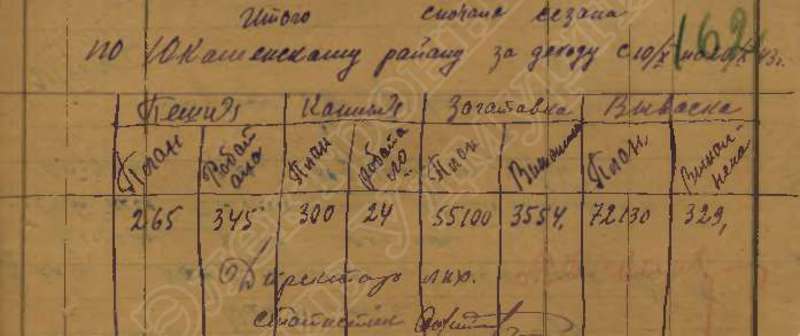 Итого сначала сезана
по Юкаменскому району за декаду с 10/X
162
Пеших Конных Заготовка Вывозка
План Работ ала План работа ло План Выполнено План Выпол- нена
265 345 300 24 55100 3554, 72130 329,
Директор лпх.
статистик